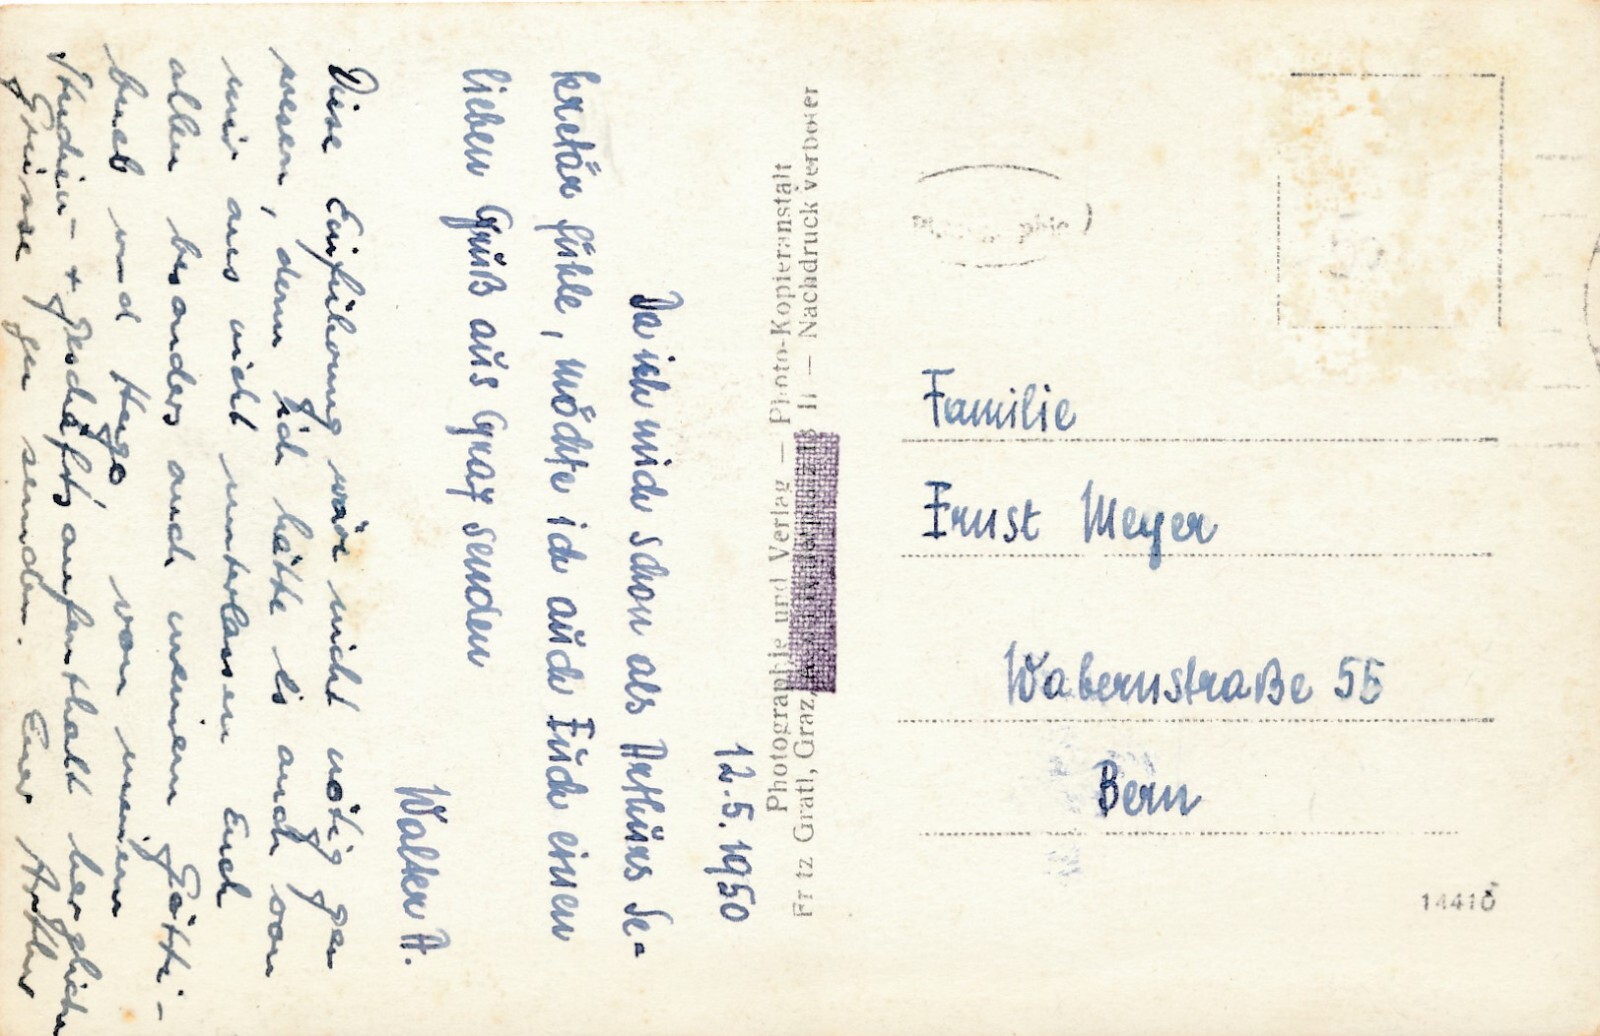 12.5.1950
Da ich mich schon als Arthurs Se-
kretär fühle, möchte ich auch Euch einen
lieben Gruß aus Graz senden
Walter A.
Diese Einführung wär nicht nötig ge-
wesen, denn ich hätte es auch von
mir aus nicht unterlassen Euch
allen besonders auch meinem Götti-
bueb und Hugo, von meinem
Studien- + Geschäftsaufenthalt herzliche
Grüsse zu senden. Euer Arthur
Photographie und Verlag – Photo-Kopieranstalt
Fritz Gratl, Graz, II – Nachdruck verboten
Familie
Ernst Meyer
Wabernstraße 55
Bern
14410